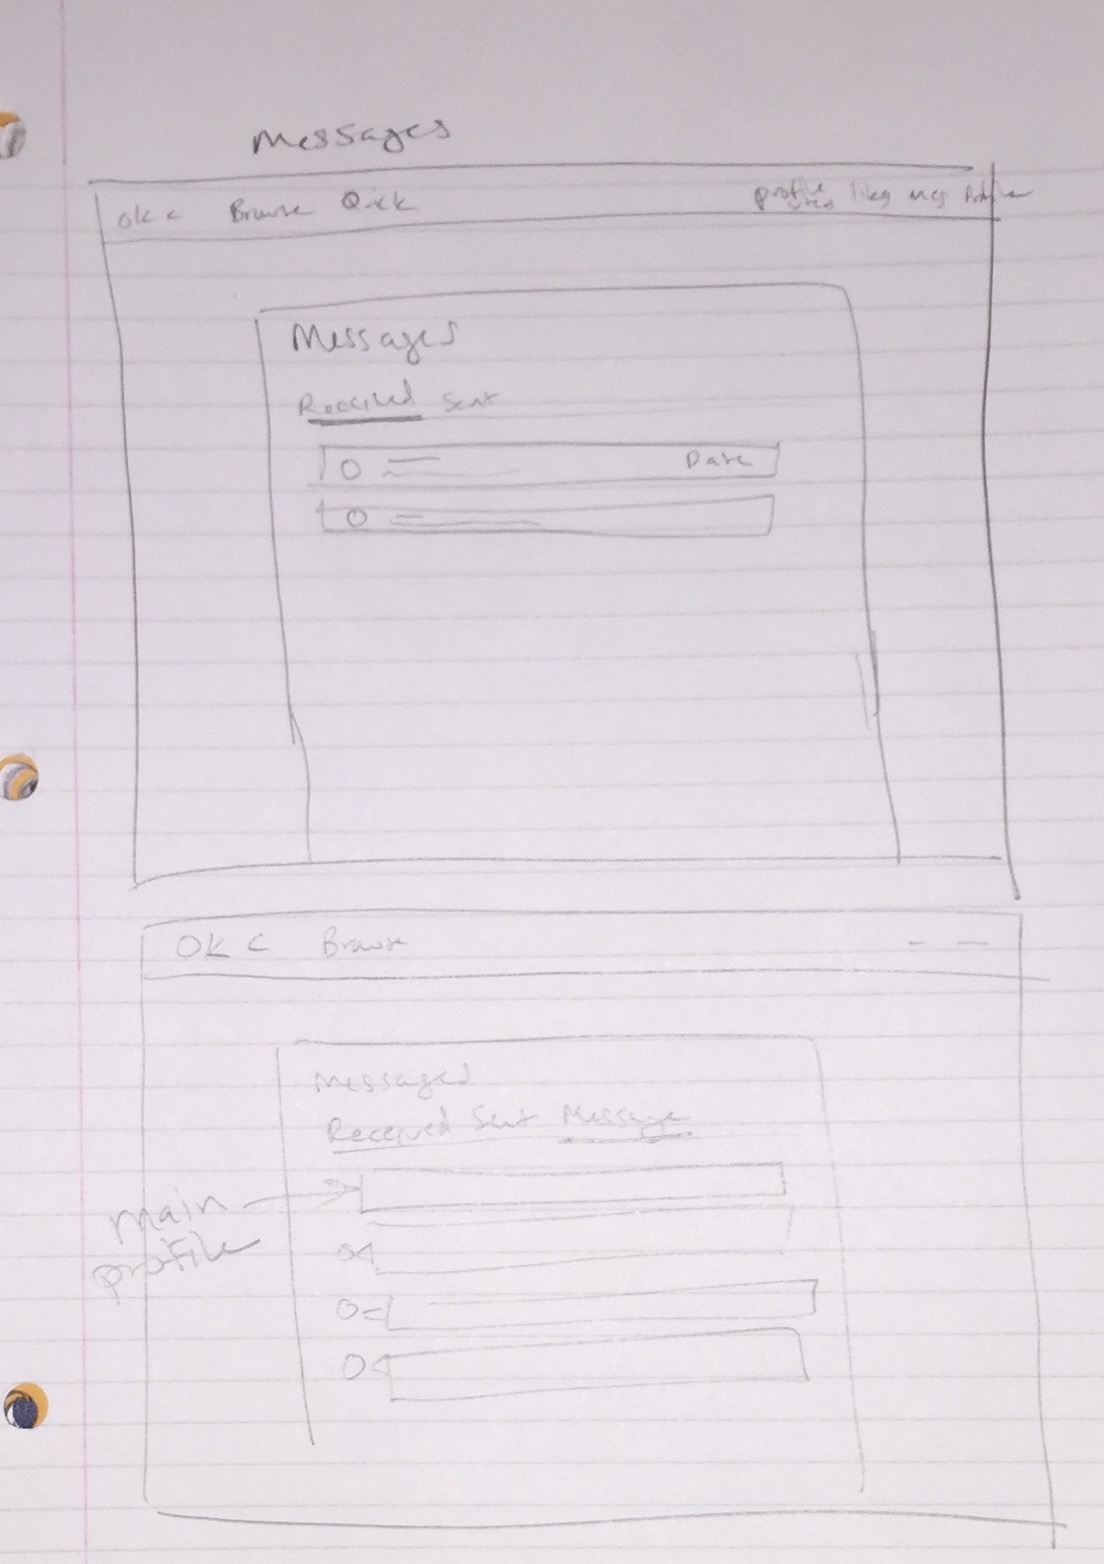 Messages
OKC Browse Quick profile likes msgs Profile
Messages
Received Sent
Date
OKC Browse
Messages
Received Sent Message
main
profile